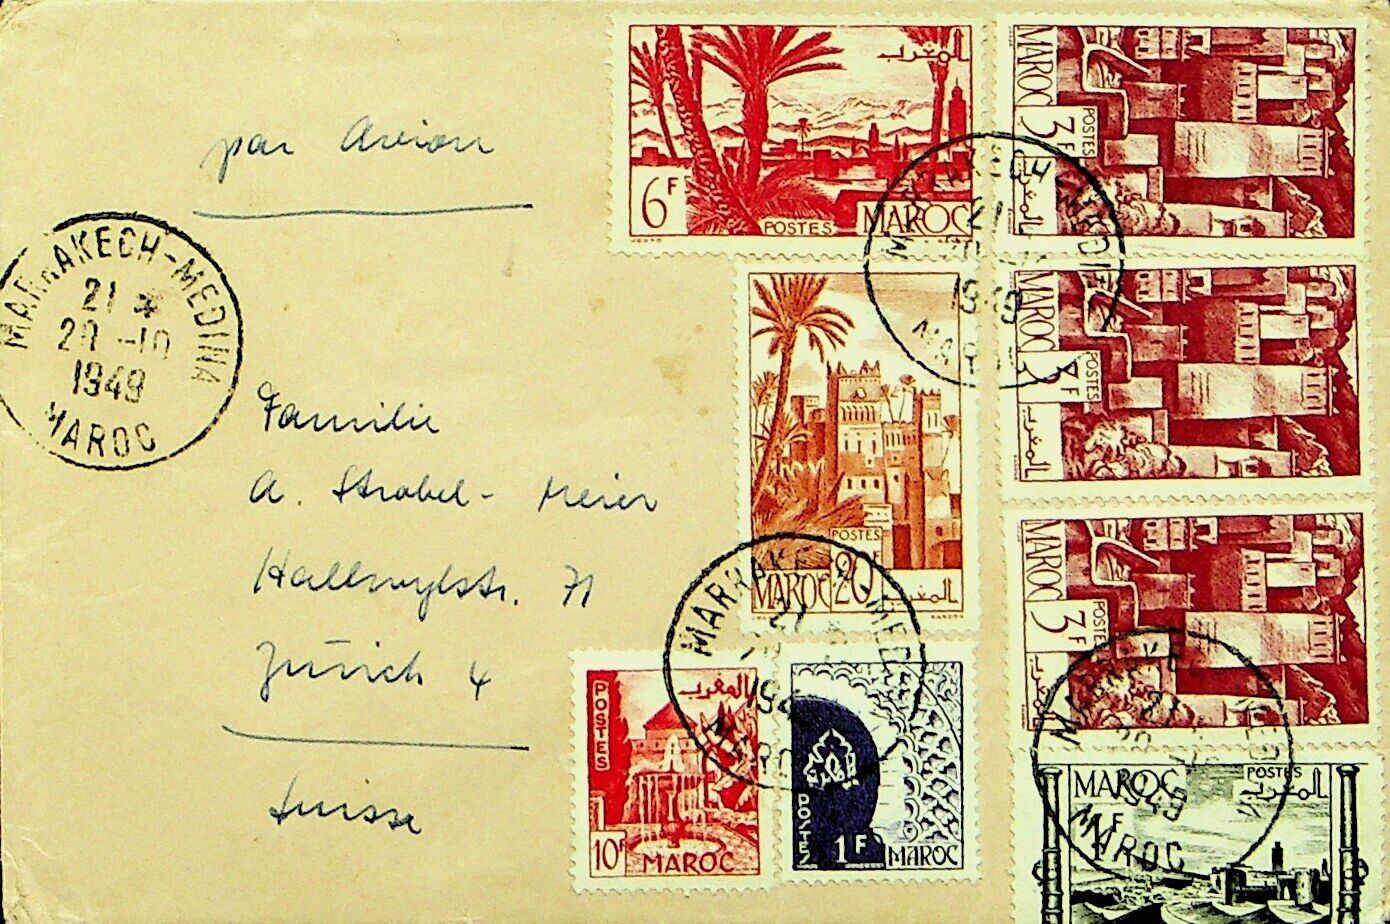 par Avion
MARRAKECH-MEDINA
21 *
20 -10
1949
MAROC
Familie
A. Strobel-Meier
Hallwylstr. 71
Zürich 4
Suisse
المغرب
6F
POSTES
MAROC
MAROC
3F
POSTES
المغرب
MAROC
3F
POSTES
المغرب
MAROC
3F
POSTES
المغرب
POSTES
MAROC
20F
المغرب
POSTES
المغرب
10F
MAROC
POSTES
1F
MAROC
MAROC
POSTES
المغرب
1F
MARRAKECH-MEDINA
21
1949
MAROC
MARRAKECH-MED
21
MAROC
21
1949
MAROC